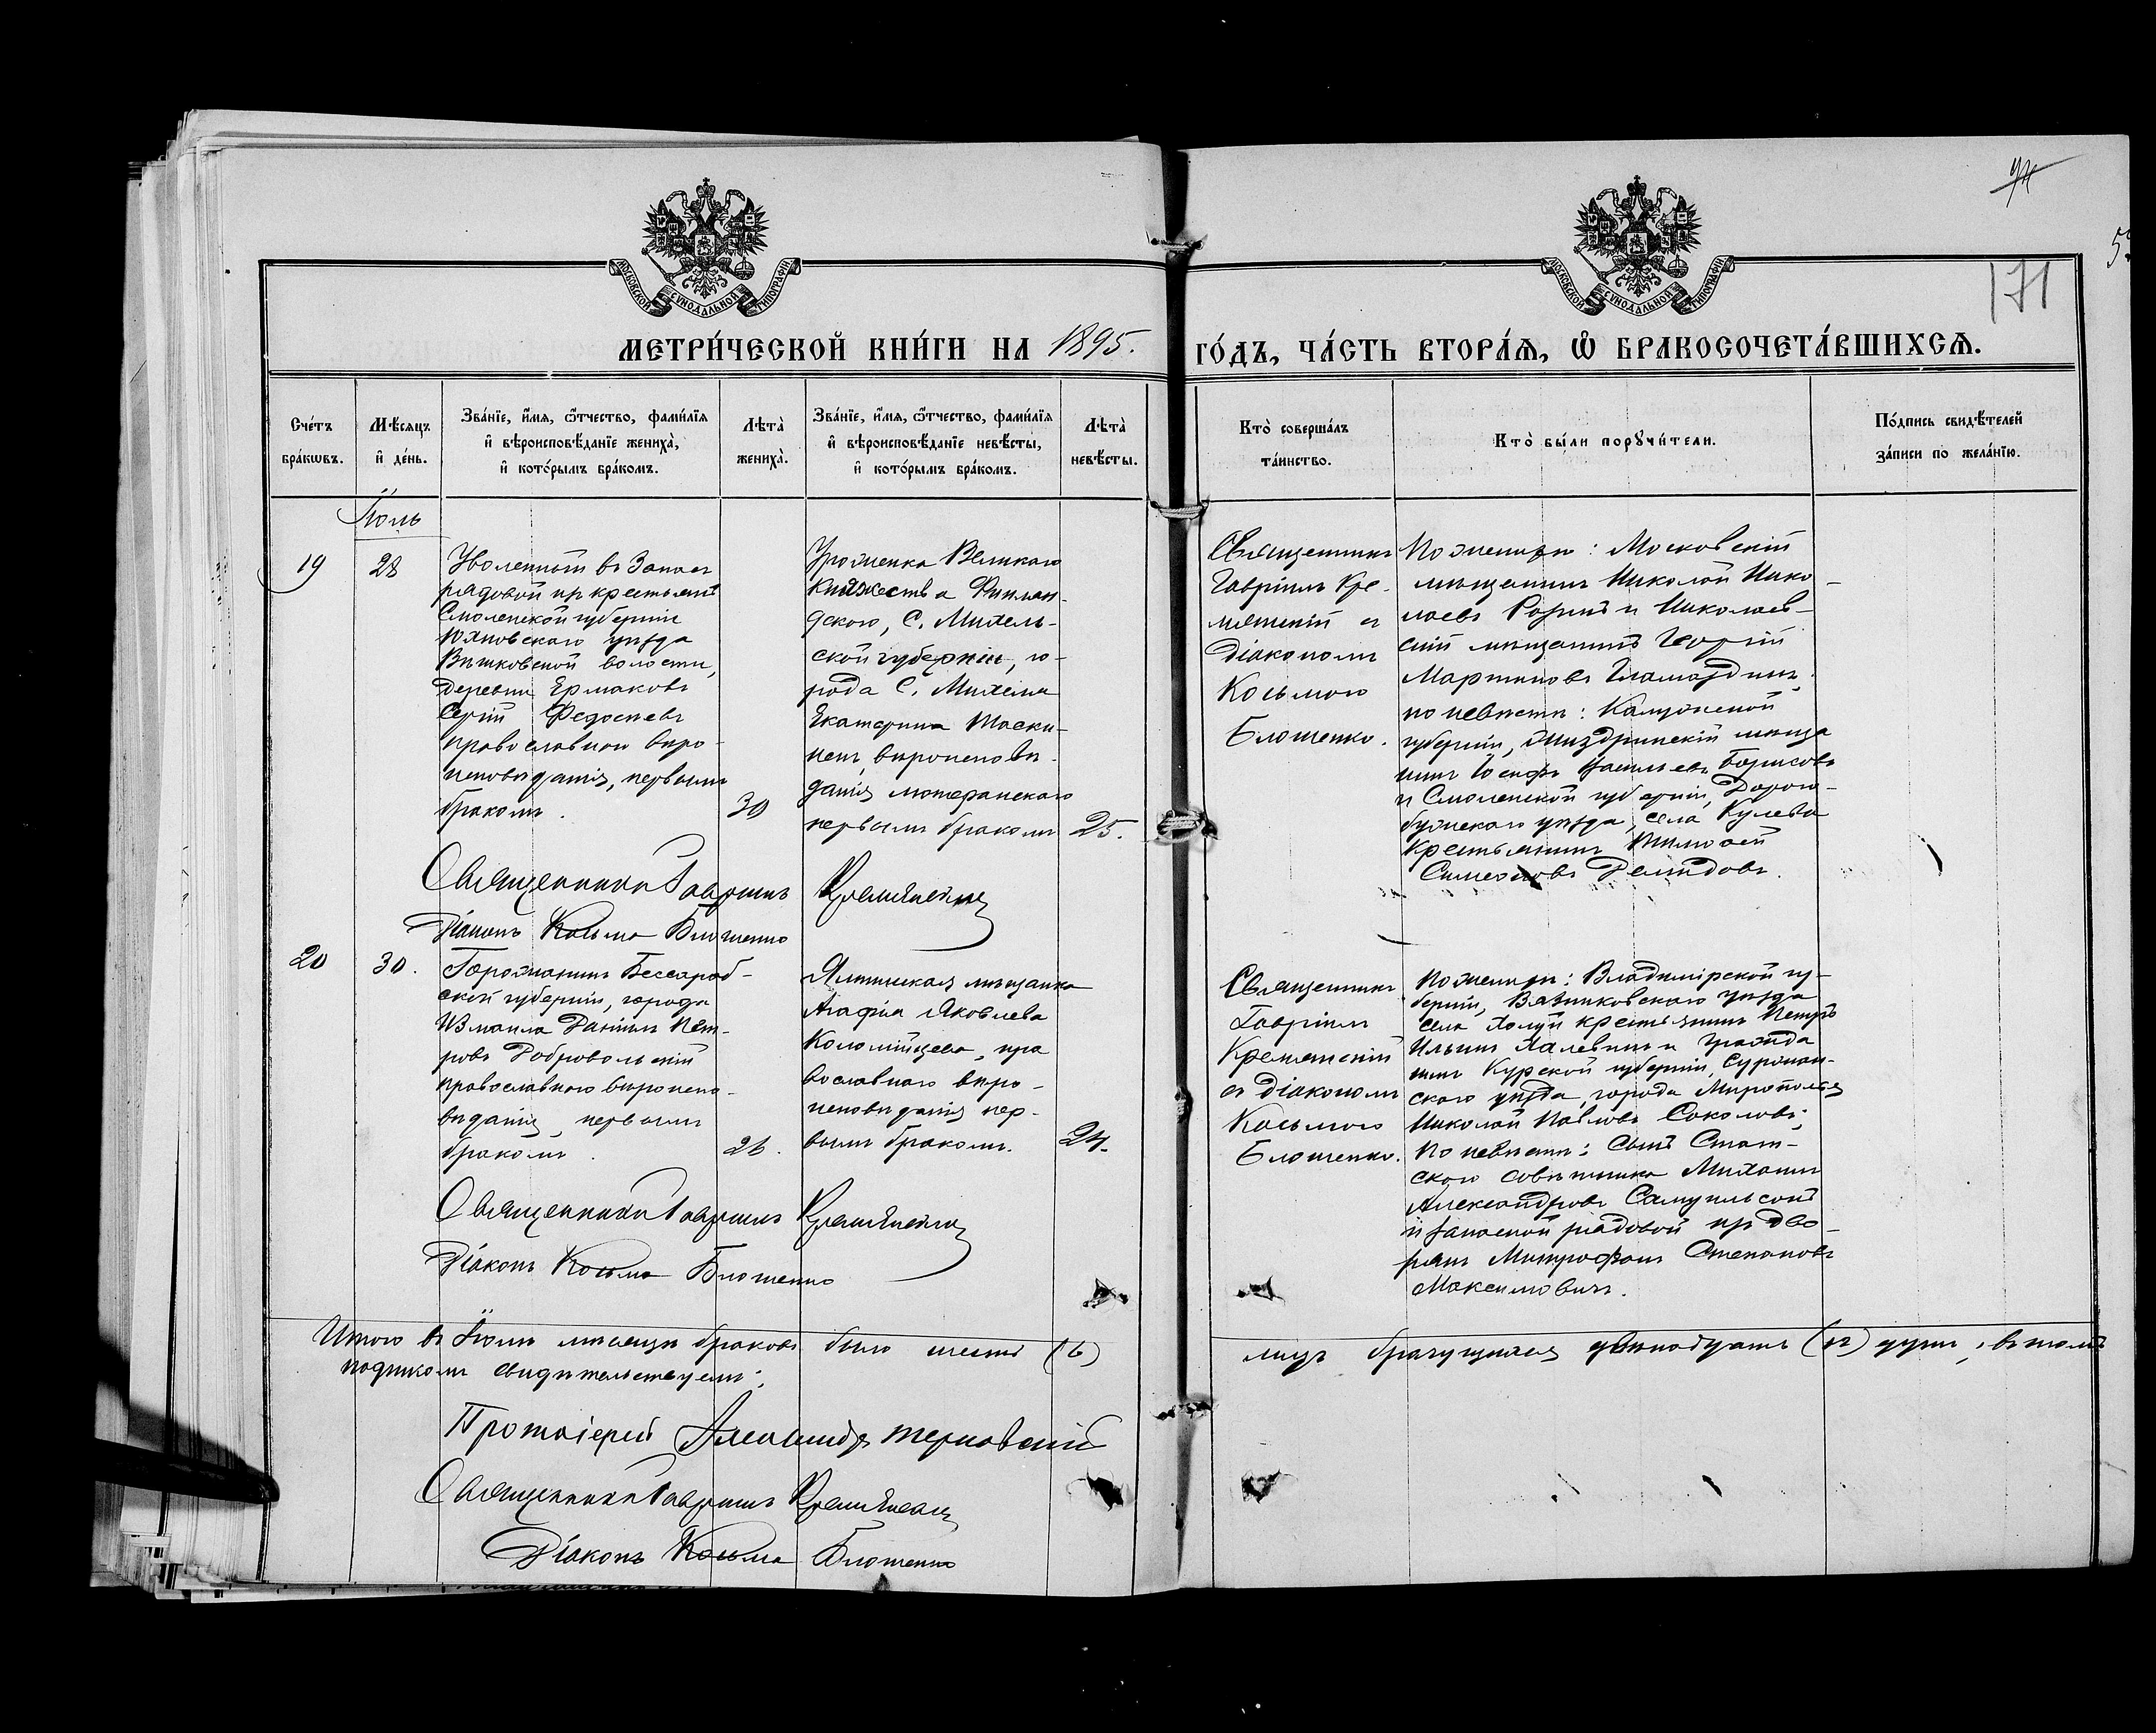 94
5
171
МОСКОВСКОЙ СѴНОДАЛЬНОЙ ТИПОГРАФІИ
МОСКОВСКОЙ СѴНОДАЛЬНОЙ ТИПОГРАФІИ
МЕТРИ́ЧЕСКОЙ КНИ́ГИ НА 1895. ГО́ДЪ, ЧА́СТЬ ВТОРА́Ѧ, Ѽ БРАКОСОЧЕТА́ВШИХСѦ.
Сче́тъ
бра́кѡвъ.
Мѣ́сяцъ
и҆ де́нь.
Зва́нїе, и҆́мя, ѻ҆́тчество, фами́лїя
и҆ вѣроисповѣ́данїе жениха̀,
и҆ кото́рымъ бра́комъ.
Лѣта̀
жениха̀.
Зва́нїе, и҆́мя, ѻ҆́тчество, фами́лїя
и҆ вѣроисповѣ́данїе невѣ́сты,
и҆ кото́рымъ бра́комъ.
Лѣта̀
невѣ́сты.
Кто̀ соверша́лъ
та́инство.
Кто̀ бы́ли порꙋчи́тели.
По́дпись свидѣ́телей
за́писи по жела́нїю.
Іюль
19
28
Уволенный въ Запасъ
рядовой изъ крестьянъ
Смоленской губерніи
Юхновскаго уѣзда
Вышковской волости,
деревни Ермаковъ
Сергій Федосѣевъ
православнаго вѣро-
исповѣданія, первымъ
бракомъ.
30
Уроженка Великаго
Княжества Финлян-
дскаго, С. Михель-
ской губерніи, го-
рода С. Михеля
Екатерина Таски-
нен, вѣроисповѣ-
данія лютеранскаго
первымъ бракомъ
25.
Священникъ
Гавріилъ Кре-
мянскій съ
діакономъ
Косьмою
Блошенко.
По женихѣ: Московскій
мѣщанинъ Николай Нико-
лаевъ и Николаев-
скій мѣщанинъ Георгій
Мартиновъ
по невѣстѣ: Калужской
губерніи, Жиздринскій мѣща
нинъ Іосифъ Васильевъ Борисовъ
и Смоленской губерніи, Дорого-
бужскаго уѣзда, села Кулева
Крестьянинъ Тимофей
Симеоновъ Демидовъ.
Священникъ Гавріилъ Кремянскій
Діаконъ Косьма Блошенко
20
30.
Горожанинъ Бессараб-
ской губерніи, города
Измаила Даніилъ Пет-
ровъ Добровольскій
православнаго вѣроиспо-
вѣданія, первымъ
бракомъ.
26.
Ялтинская мѣщанка
Агафія Яковлева
Коломійцева, пра
вославнаго вѣро-
исповѣданія пер-
вымъ бракомъ.
24.
Священникъ
Гавріилъ
Кремянскій
съ діакономъ
Косьмою
Блошенко.
По женихѣ: Владимірской гу-
берніи, Вязниковскаго уѣзда
села Холуй крестьянинъ Петръ
Ильинъ Халевинъ и гражда
нинъ Курской губерніи, Суджан-
скаго уѣзда, города Мирополья
Николай Павловъ Соколовъ;
По невѣстѣ: Сынъ Стат-
скаго совѣтника Михаилъ
Александровъ Самуильсонъ
и запасной рядовой изъ дво-
рянъ Митрофанъ Степановъ
Максимовичъ.
Священникъ Гавріилъ Кремянскій
Діаконъ Косьма Блошенко
Итого въ Іюлѣ мѣсяцѣ браковъ было шесть (6) лицъ брачущихся двѣнадцать (12) душъ, въ томъ
подписомъ свидѣтельствуемъ;
Протоіерей Александръ Терновскій
Священникъ Гавріилъ Кремянскій
Діаконъ Косьма Блошенко